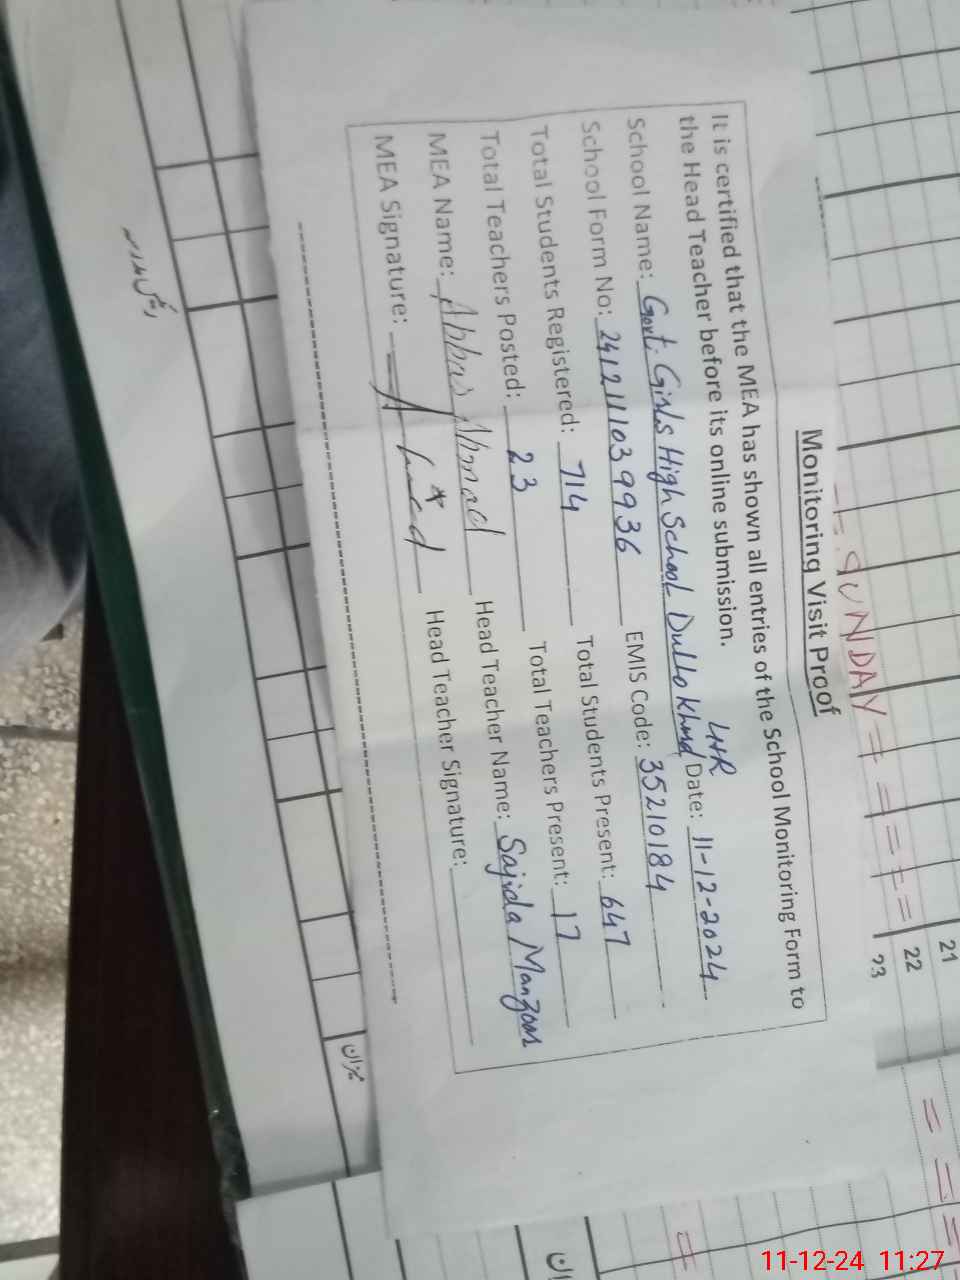 Monitoring Visit Proof
It is certified that the MEA has shown all entries of the School Monitoring Form to
the Head Teacher before its online submission.
LHR
School Name: Govt. Girls High School Dullo Khurd Date: 11-12-2024
School Form No: 24121103 9936 EMIS Code: 35210184
Total Students Registered: 714 Total Students Present: 647
Total Teachers Posted: 23 Total Teachers Present: 17
MEA Name: Abbas Ahmad Head Teacher Name: Sajida Manzoor
MEA Signature: Head Teacher Signature:
SUNDAY
21
22
23
میزان
11-12-24 11:27